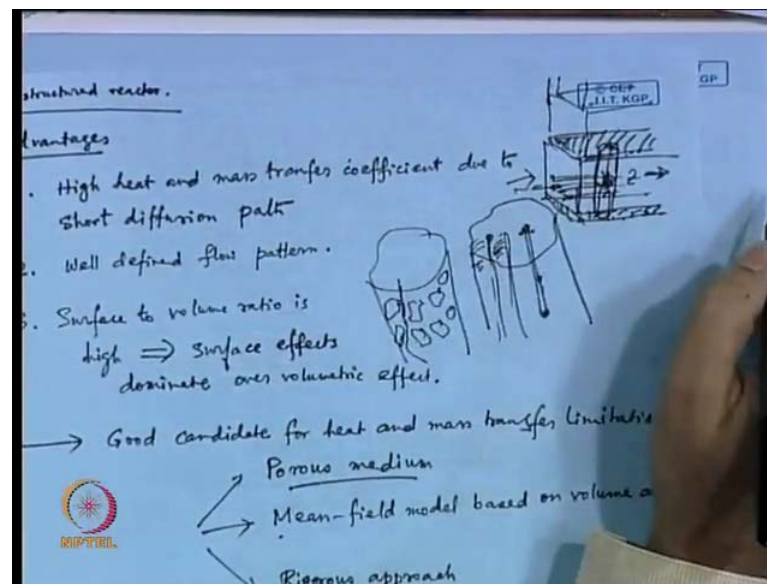 structured reactor.
© CET
I.I.T. KGP
GP
dvantages
. High heat and mass transfer coefficient due to
short diffusion path
2. Well defined flow pattern.
z
3. Surface to volume ratio is
high ⇒ surface effects
dominate over volumetric effect.
→ Good candidate for heat and mass transfer limitatio
Porous medium
Mean-field model based on volume a
Rigorous approach
NPTEL